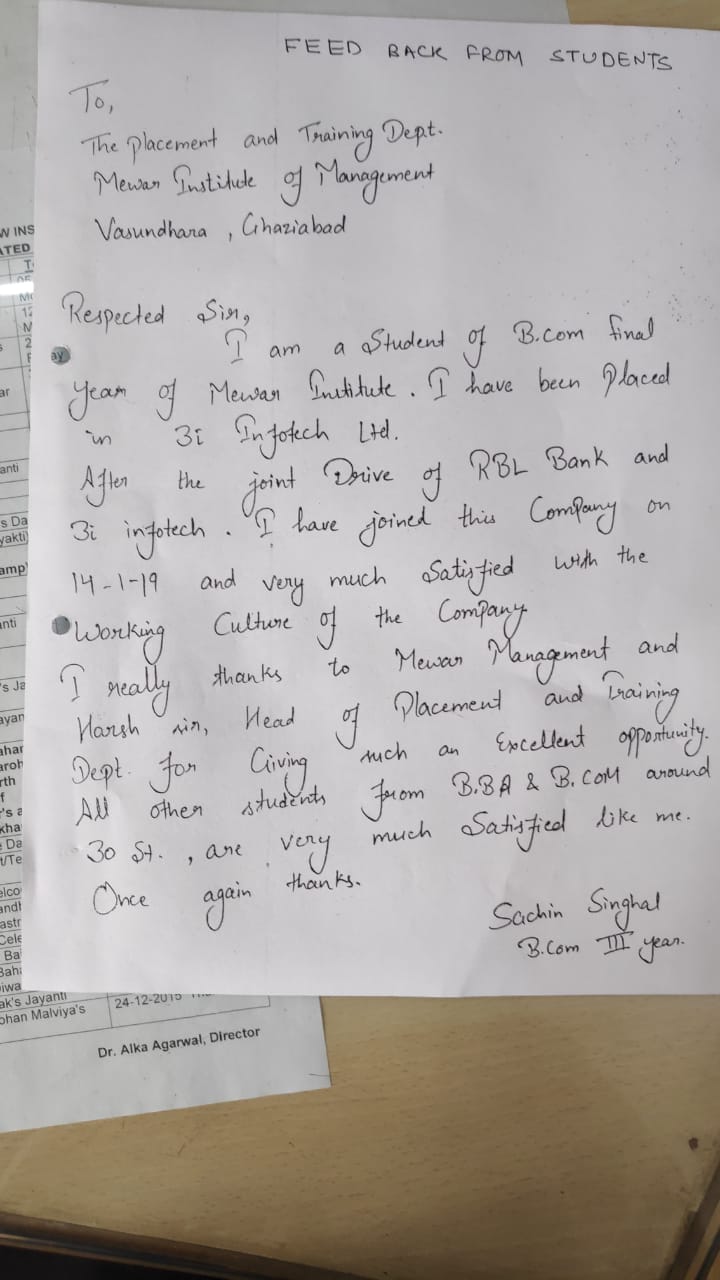 FEED BACK FROM STUDENTS
To,
The Placement and Training Dept.
Mewar Institute of Management
Vasundhara , Ghaziabad
Respected Sir,
I am a Student of B.com final
year of Mewar Institute. I have been Placed
in 3i Infotech Ltd.
After the joint Drive of RBL Bank and
3i infotech. I have joined this Company on
14-1-19 and very much Satisfied with the
Working Culture of the Company
I really thanks to Mewar Management and
Harsh sir, Head of Placement and Training
Dept. for Giving such an Excellent opportunity.
All other students from B.BA & B.COM around
30 St. , are very much Satisfied like me.
Once again thanks.
Sachin Singhal
B.Com III year.
W INS
ATED
ay
ar
anti
s Da
yakti)
amp
anti
's Ja
ayan
ahar
aroh
rth
f
's a
kha
Da
t/Te
elco
andh
astr
Cele
Ba
Baha
iwa
ak's Jayanti
ohan Malviya's 24-12-2015
Dr. Alka Agarwal, Director